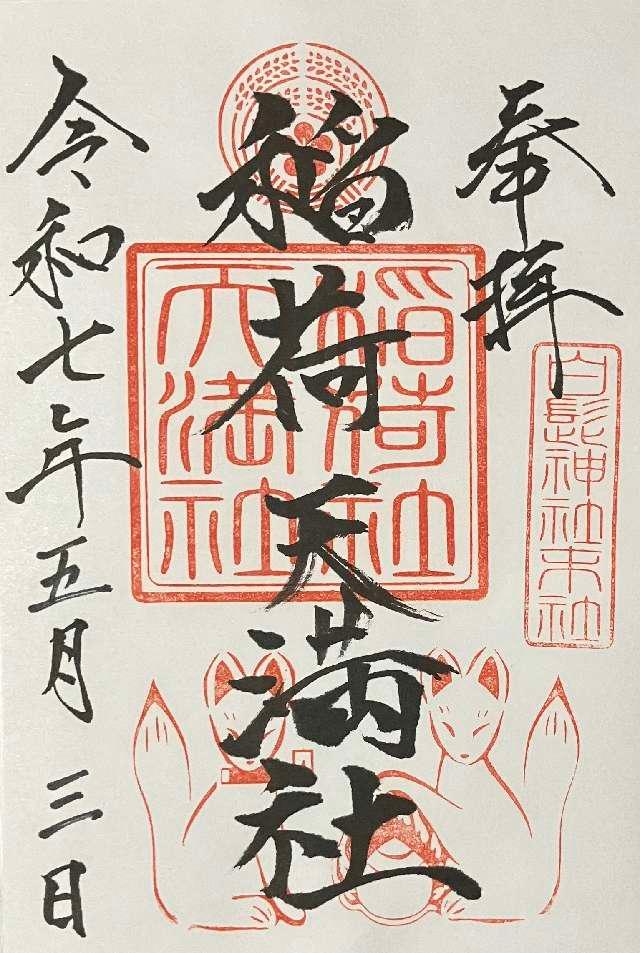 奉拝
白髭神社末社
稲荷天満社
稲荷社
天満社
令和七年五月三日